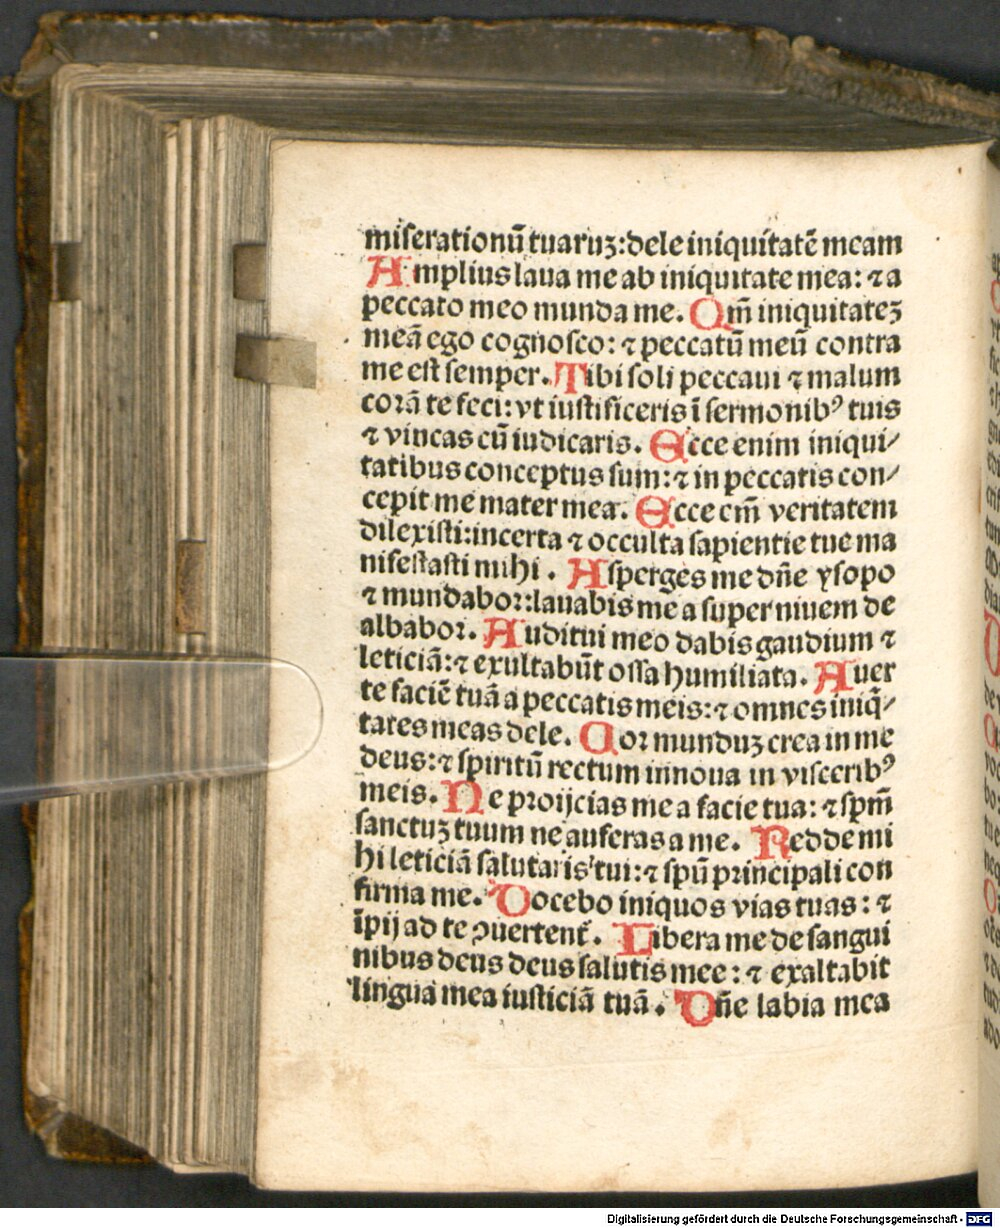 miserationū tuaruꝫ: dele iniquitatē meam
Amplius laua me ab iniquitate mea: ⁊ a
peccato meo munda me. Qm̄ iniquitateꝫ
meā ego cognosco: ⁊ peccatū meū contra
me est semper. Tibi soli peccaui ⁊ malum
corā te feci: vt iustificeris ī sermonibꝰ tuis
⁊ vincas cū iudicaris. Ecce enim iniqui⸗
tatibus conceptus sum: ⁊ in peccatis con⸗
cepit me mater mea. Ecce em̄ veritatem
dilexisti: incerta ⁊ occulta sapientie tue ma
nifestasti mihi. Asperges me dn̄e ysopo
⁊ mundabor: lauabis me a super niuem de
albabor. Auditui meo dabis gaudium ⁊
leticiā: ⁊ exultabūt ossa humiliata. Auer
te faciē tuā a peccatis meis: ⁊ omnes iniq̄⸗
tates meas dele. Cor munduꝫ crea in me
deus: ⁊ spiritū rectum innoua in visceribꝰ
meis. Ne proijcias me a facie tua: ⁊ spm̄
sanctuꝫ tuum ne auferas a me. Redde mi
hi leticiā salutaris tui: ⁊ spū principali con
firma me. Docebo iniquos vias tuas: ⁊
īpij ad te ꝯuertent᷑. Libera me de sangui
nibus deus deus salutis mee: ⁊ exaltabit
lingua mea iusticiā tuā. Dn̄e labia mea
Digitalisierung gefördert durch die Deutsche Forschungsgemeinschaft - DFG